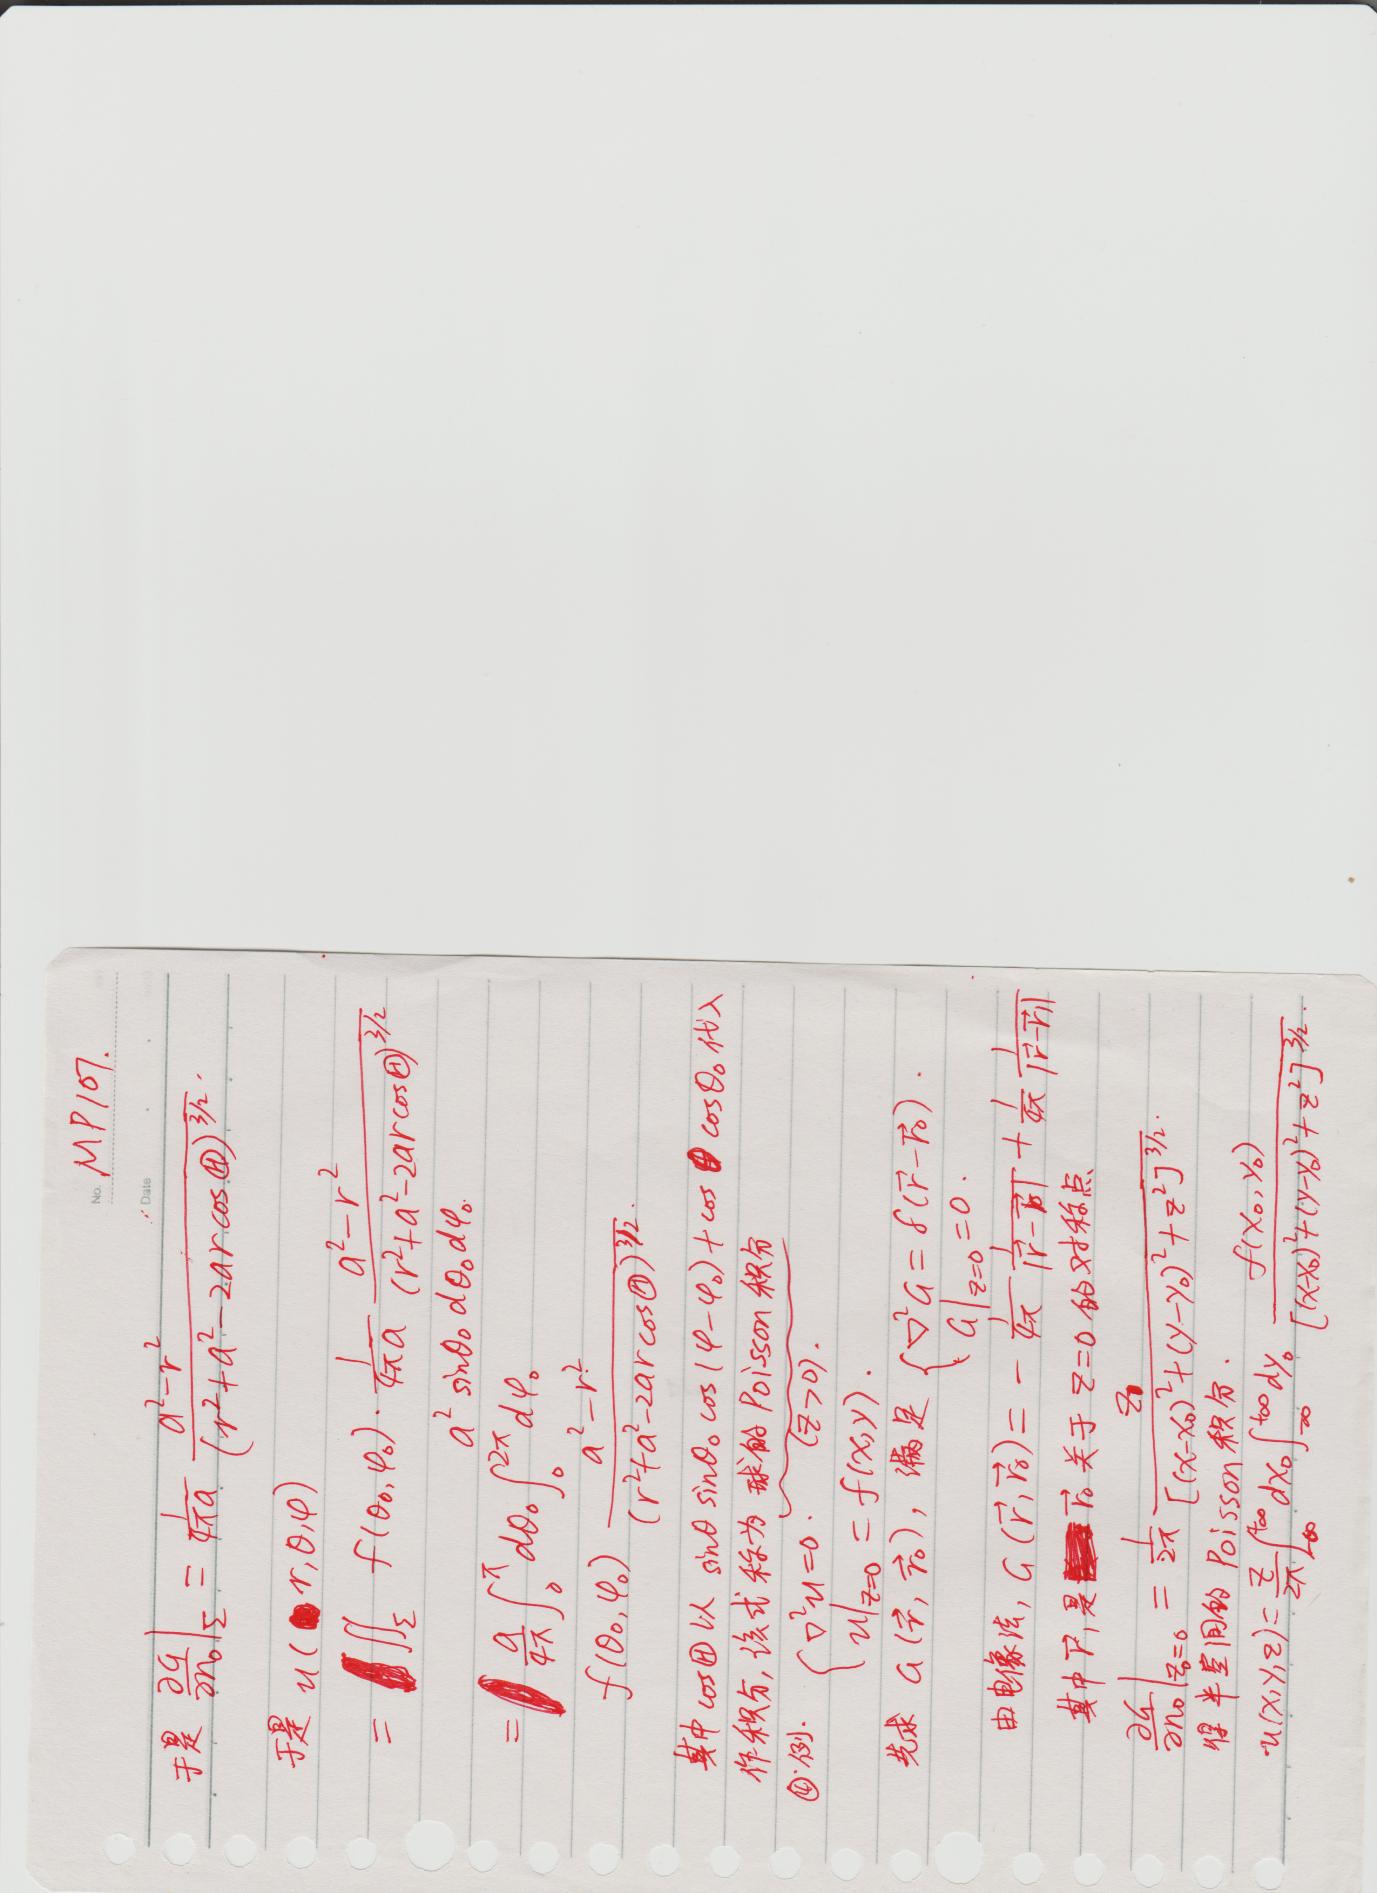 No. MP107.
Date
于是 ∂G/∂n₀|_Σ = 1/(4πa) (a²-r²)/(r²+a²-2ar cosⒽ)^{3/2}.
于是 u(r,θ,φ)
= ∬_Σ f(θ₀,φ₀)·1/(4πa) (a²-r²)/(r²+a²-2ar cosⒽ)^{3/2}
a² sinθ₀ dθ₀ dφ₀.
= a/(4π) ∫₀^π dθ₀ ∫₀^{2π} dφ₀
f(θ₀,φ₀) (a²-r²)/(r²+a²-2ar cosⒽ)^{3/2}.
其中 cosⒽ 以 sinθ sinθ₀ cos(φ-φ₀)+cosθ cosθ₀ 代入
作积分, 该式称为 球的 Poisson 积分
④·例. { ∇²u=0. (z>0).
u|_{z=0} = f(x,y).
先求 G(r⃗, r⃗₀), 满足 { ∇²G = δ(r⃗-r⃗₀).
G|_{z=0}=0.
由电像法, G(r⃗,r⃗₀) = - 1/(4π) 1/|r⃗-r⃗₀| + 1/(4π) 1/|r⃗-r⃗₁|
其中 r⃗₁是 r⃗₀ 关于 z=0 的对称点
∂G/∂n₀|_{z₀=0} = 1/(2π) z/[(x-x₀)²+(y-y₀)²+z²]^{3/2}.
得半空间的 Poisson 积分.
u(x,y,z)= z/(2π) ∫_{-∞}^{+∞} dx₀ ∫_{-∞}^{+∞} dy₀ f(x₀,y₀)/[(x-x₀)²+(y-y₀)²+z²]^{3/2}.